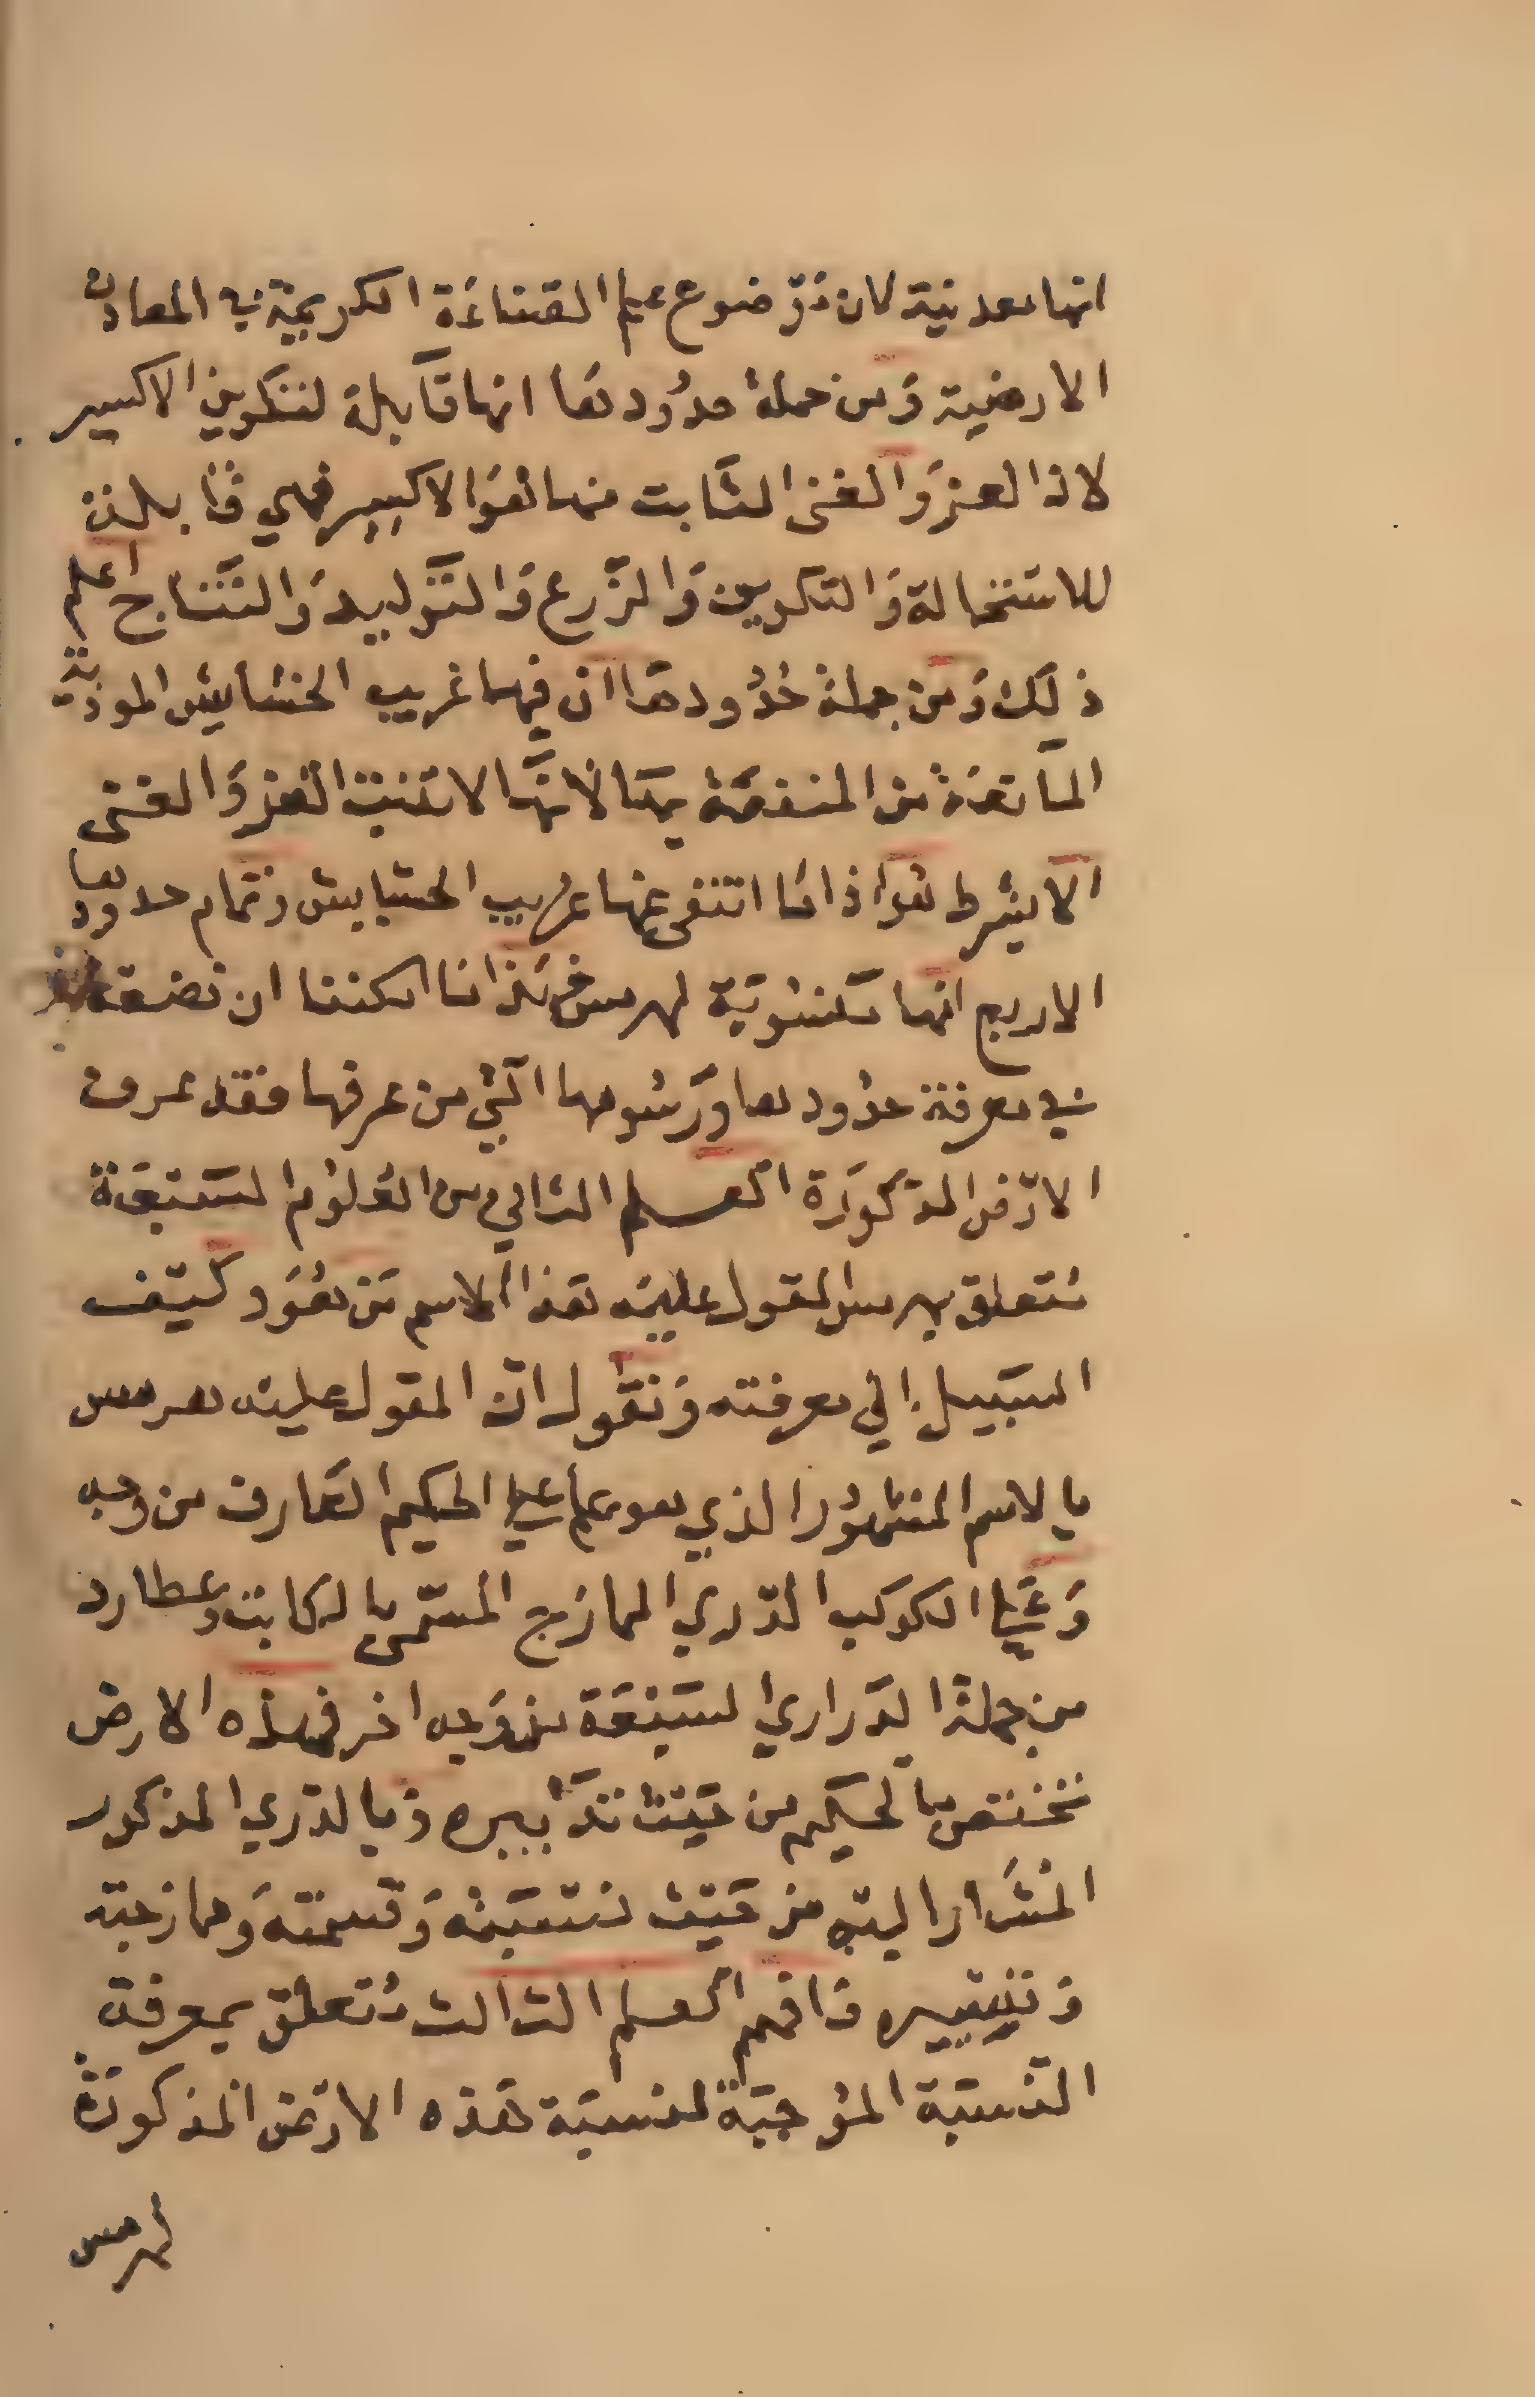 انها معدنية لان موضوع علم الصناعة الكريمة في المعادن
الارضية ومن جملة حدودها انها قابلة لتكوين الاكسير
لان العز والغنى الثابت منها هو الاكسير فهي قابلة
للاستحالة والتكوين والزرع والتوليد والنتاج اعلم
ذلك ومن جملة حدودها ان فيها غريب الحشايش الموذية
المانعة من المنفعة بها لانها لا تنبت العز والغنى
الا بشرط هو اذا ما انتفى عنها غريب الحشايش وتمام حدودها
الاربع انها منسوبة لهرمس فهذا ما امكننا ان نضعه
في معرفة حدودها ورسومها التي من عرفها فقد عرف
الارض المذكورة العلم الثاني من العلوم السبعة
متعلق بهرمس المقول عليه هذا الاسم من هو وكيف
السبيل الى معرفته ونقول ان المقول عليه هرمس
بالاسم المشهور الذي هو علم على الحكيم العارف من وجه
وعلى الكوكب الدري الممازج المسمى بالكاتب وعطارد
من جملة الدراري السبعة من وجه اخر فهذه الارض
تختص بالحكيم من حيث تدابيره وبالدري المذكور
المشار اليه من حيث نسبته وقسمته وممازجته
وتسييره فافهم العلم الثالث متعلق بمعرفة
النسبة الموجبة لنسبة هذه الارض المذكورة
لهرمس